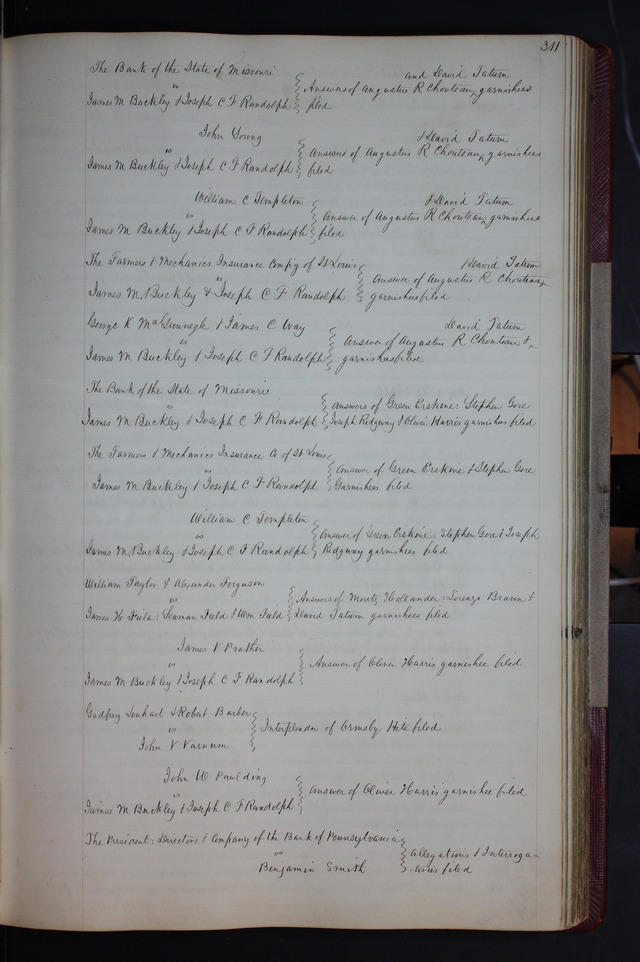 311
The Bank of the State of Missouri
vs
James M Buckley & Joseph C F Randolph
and David Tatum
Answers of Augustus R Chouteau garnishees
filed
John Young
vs
James M Buckley & Joseph C F Randolph
& David Tatum
Answers of Augustus R Chouteau garnishees
filed
William C Templeton
vs
James M Buckley & Joseph C F Randolph
& David Tatum
Answer of Augustus R Chouteau garnishees
filed
The Farmers & Mechanics Insurance Comp'y of St Louis
vs
James M Buckley & Joseph C F Randolph
& David Tatum
Answer of Augustus R Chouteau
garnishees filed
George K McGunnegle & James C Way
vs
James M Buckley & Joseph C F Randolph
David Tatum
Answer of Augustus R Chouteau &
garnishees filed
The Bank of the State of Missouri
vs
James M Buckley & Joseph C F Randolph
Answers of Green Erskine: Stephen Gore
Joseph Ridgway & Oliver Harris garnishees filed
The Farmers & Mechanics Insurance Co of St Louis
vs
James M Buckley & Joseph C F Randolph
Answer of Green Erskine & Stephen Gore
Garnishees filed
William C Templeton
vs
James M Buckley & Joseph C F Randolph
Answer of Green Erskine: Stephen Gore & Joseph
Ridgway garnishees filed
William Taylor & Alexander Ferguson
vs
James H Field: Seaman Field & Wm Field
Answers of Moritz Hollander: Lorenzo Braun &
David Tatum garnishees filed
James V Prather
vs
James M Buckley & Joseph C F Randolph
Answer of Oliver Harris garnishee filed
Godfrey Lenhart & Robert Barber
vs
John V Varnum
Interpleader of Ormsby Hite filed
John W Paulding
vs
James M Buckley & Joseph C F Randolph
Answer of Oliver Harris garnishee filed
The President: Directors & Company of the Bank of Pennsylvania
vs
Benjamin Smith
Allegations & Interroga=
=tories filed